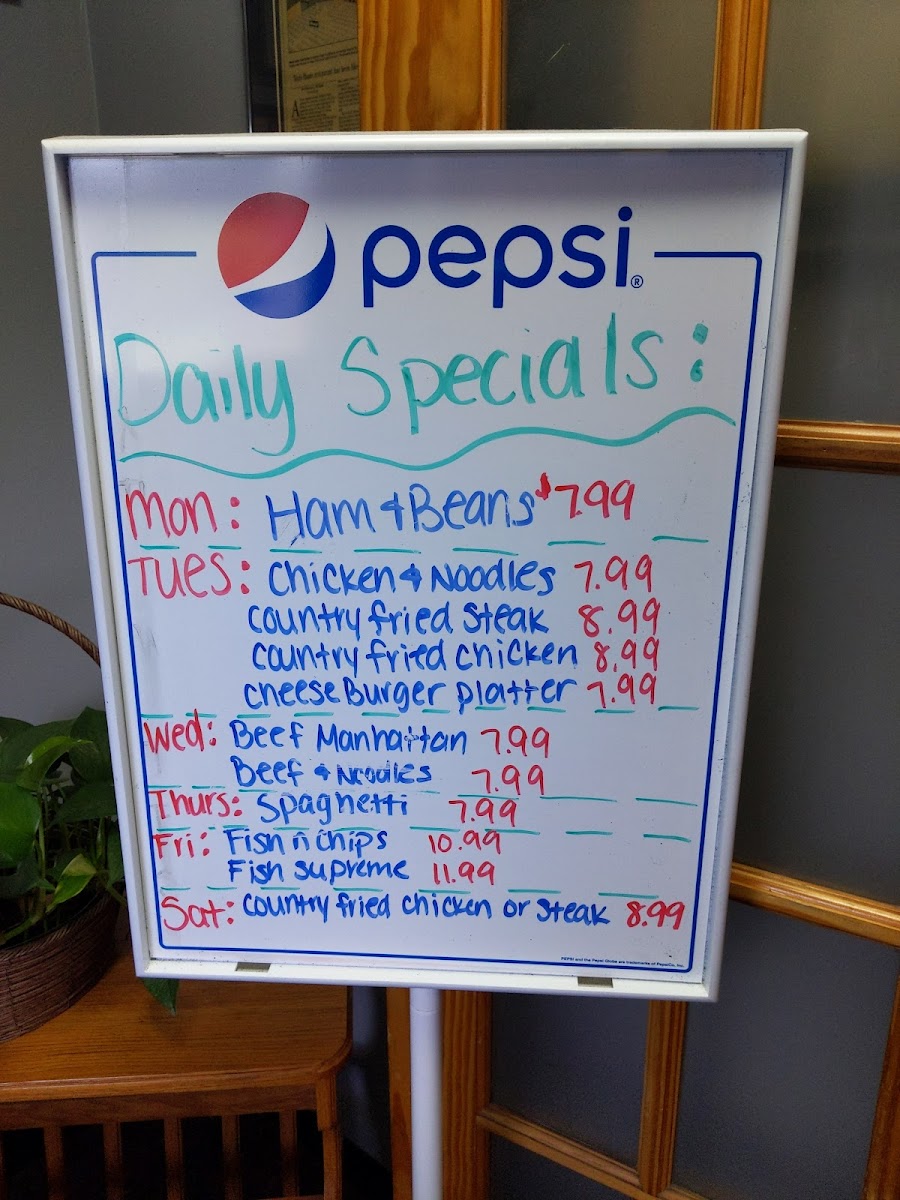 pepsi®
Daily Specials:
Mon: Ham & Beans $7.99
Tues: Chicken & Noodles 7.99
country fried steak 8.99
country fried chicken 8.99
cheese Burger platter 7.99
Wed: Beef Manhattan 7.99
Beef & Noodles 7.99
Thurs: Spaghetti 7.99
Fri: Fish n chips 10.99
Fish supreme 11.99
Sat: country fried chicken or steak 8.99
PEPSI and the Pepsi Globe are trademarks of PepsiCo, Inc.